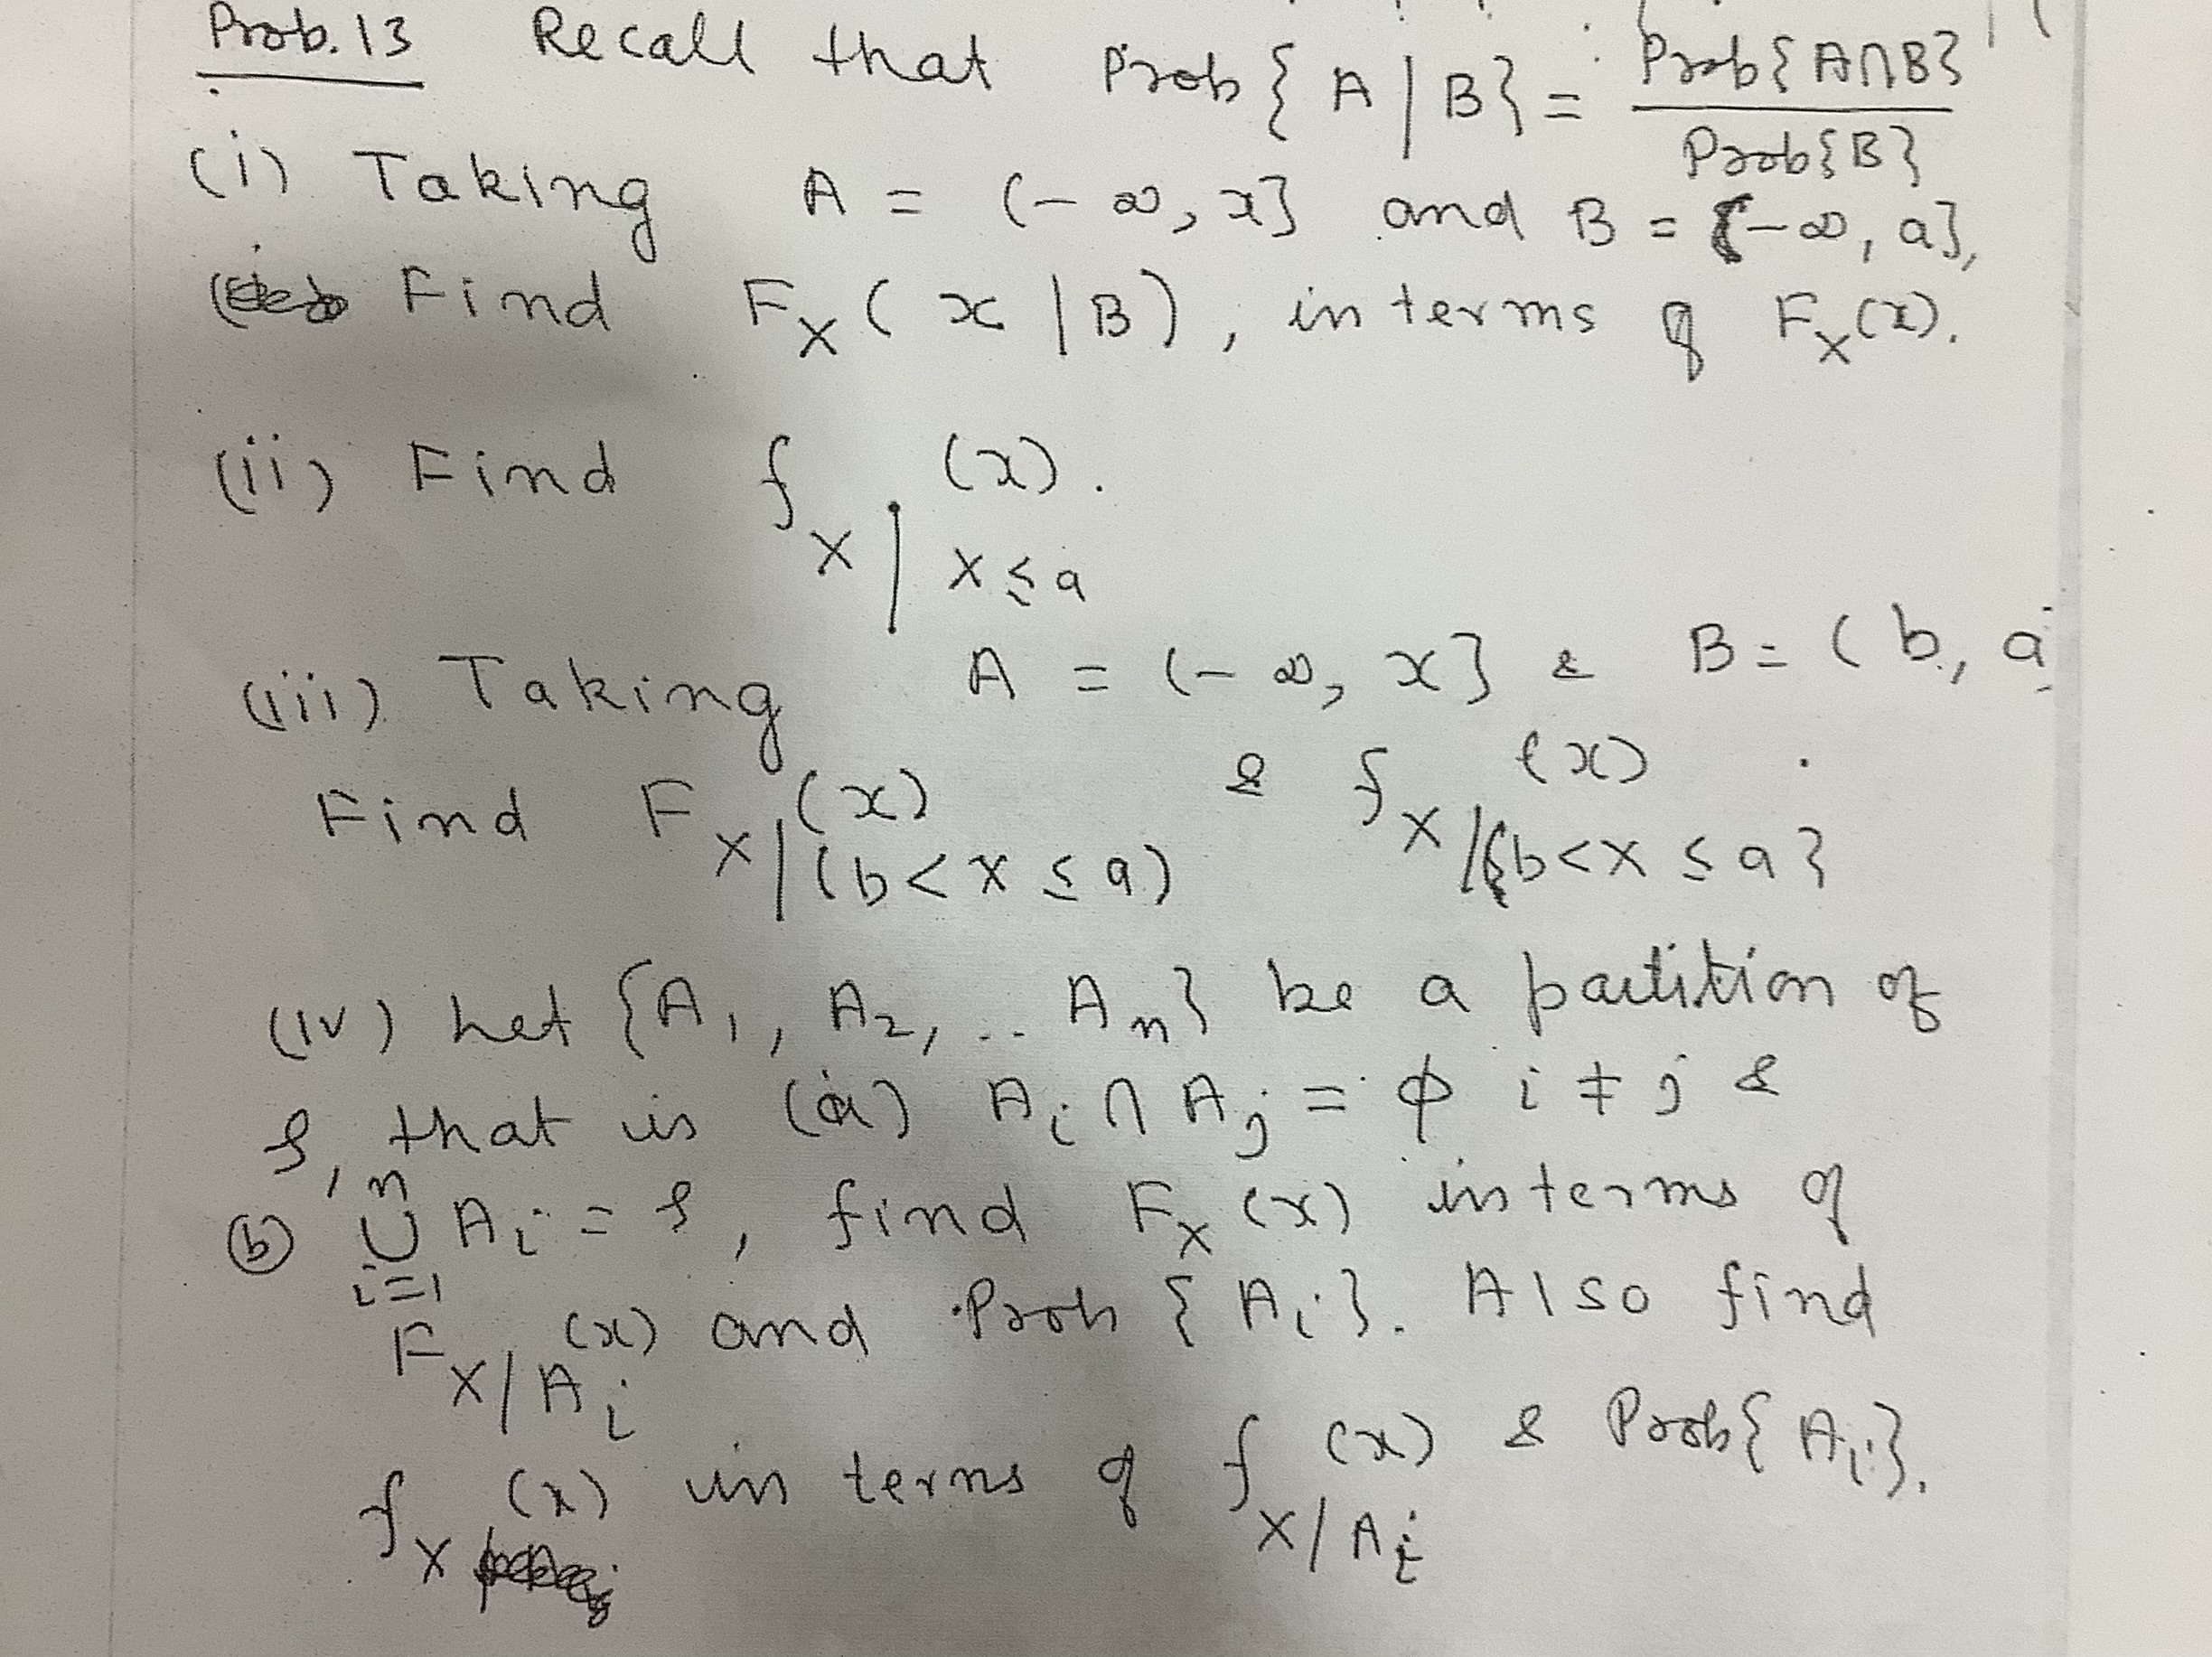 Prob. 13 Recall that Prob { A | B } = Prob{ A∩B} / Prob{B}
(i) Taking A = (-∞, x] and B = (-∞, a],
Find F_X ( x | B ), in terms of F_X(x).
(ii) Find f_{X | X ≤ a} (x).
(iii) Taking A = (-∞, x] & B = ( b, a
Find F_{X | (b < X ≤ a)} (x) & f_{X / {b < X ≤ a}} (x) .
(iv) Let {A_1, A_2, .. A_n} be a partition of
S, that is (a) A_i ∩ A_j = ϕ i ≠ j &
(b) ∪_{i=1}^{n} A_i = S, find F_X (x) in terms of
F_{X/A_i} (x) and Prob { A_i }. Also find
f_X (x) in terms of f_{X/A_i} (x) & Prob{ A_i }.